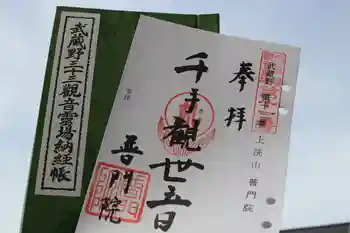 武蔵野三十三観音霊場納経帳
奉拝
千手観
廿五日
普門院
上洗山 普門院
武蔵野